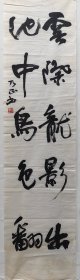 雲際龍影出
池中鳥色翻